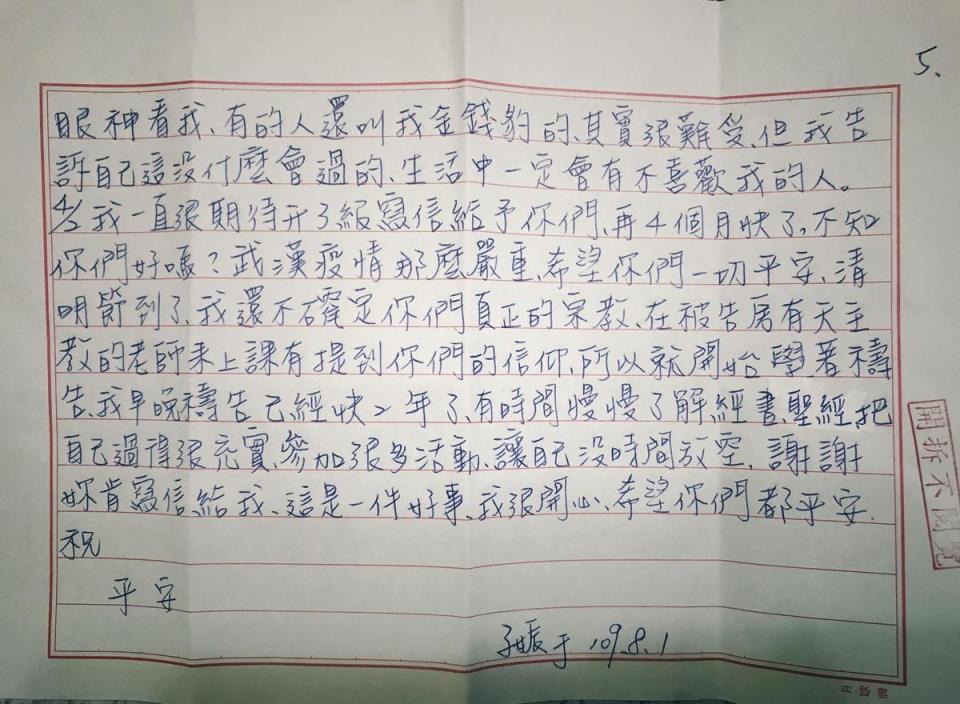 5.
眼神看我、有的人還叫我金錢豹的、其實很難受、但我告
訴自己這沒什麼會過的、生活中一定會有不喜歡我的人。
4/2 我一直很期待升3級寫信給予你們、再4個月快了。不知
你們好嗎？武漢疫情那麼嚴重、希望你們一切平安、清
明節到了、我還不確定你們真正的宗教、在被告房有天主
教的老師來上課有提到你們的信仰、所以就開始學著禱
告、我早晚禱告已經快2年了、有時間慢慢了解經書、聖經、把
自己過得很充實、參加很多活動、讓自己沒時間放空、謝謝
妳肯寫信給我、這是一件好事、我很開心、希望你們都平安.
祝
平安
于 109.8.1
開拆不閱覽
月球牌